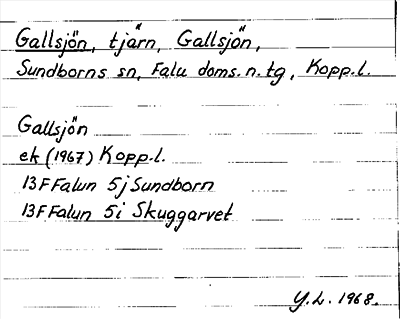 Gallsjön, tjärn, Gallsjön,
Sundborns sn, Falu doms. n. tg, Kopp.l.
Gallsjön
ek (1967) Kopp.l.
13F Falun 5j Sundborn
13F Falun 5i Skuggarvet
Y.L. 1968.